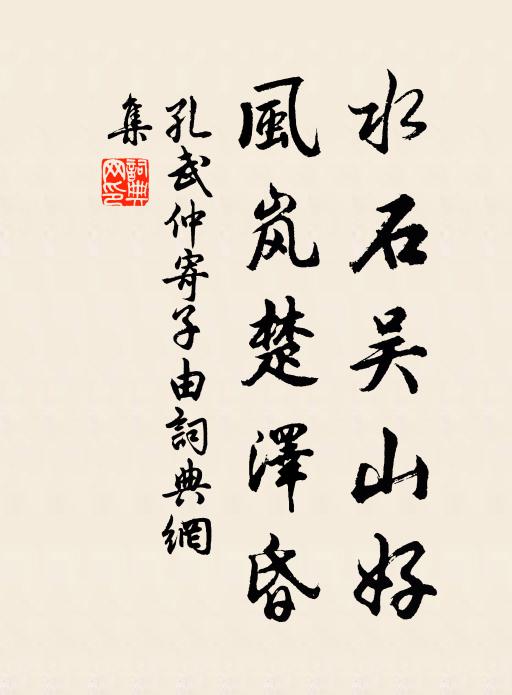 水石吴山好
風岚楚澤昏
孔武仲寄子由詞典網
集
詞典網印